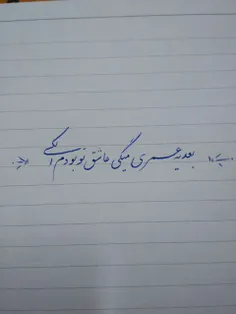 بعد یه عمری میگی عاشق تو بودم الکی